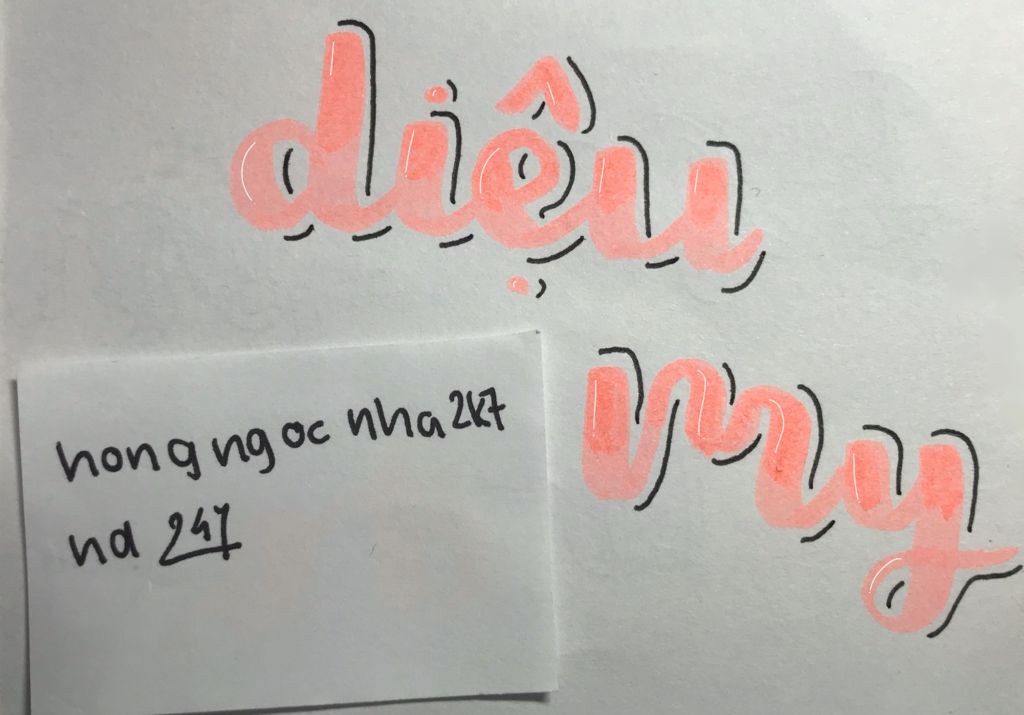 diệu
my
hongngoc nha 2k7
nd 247